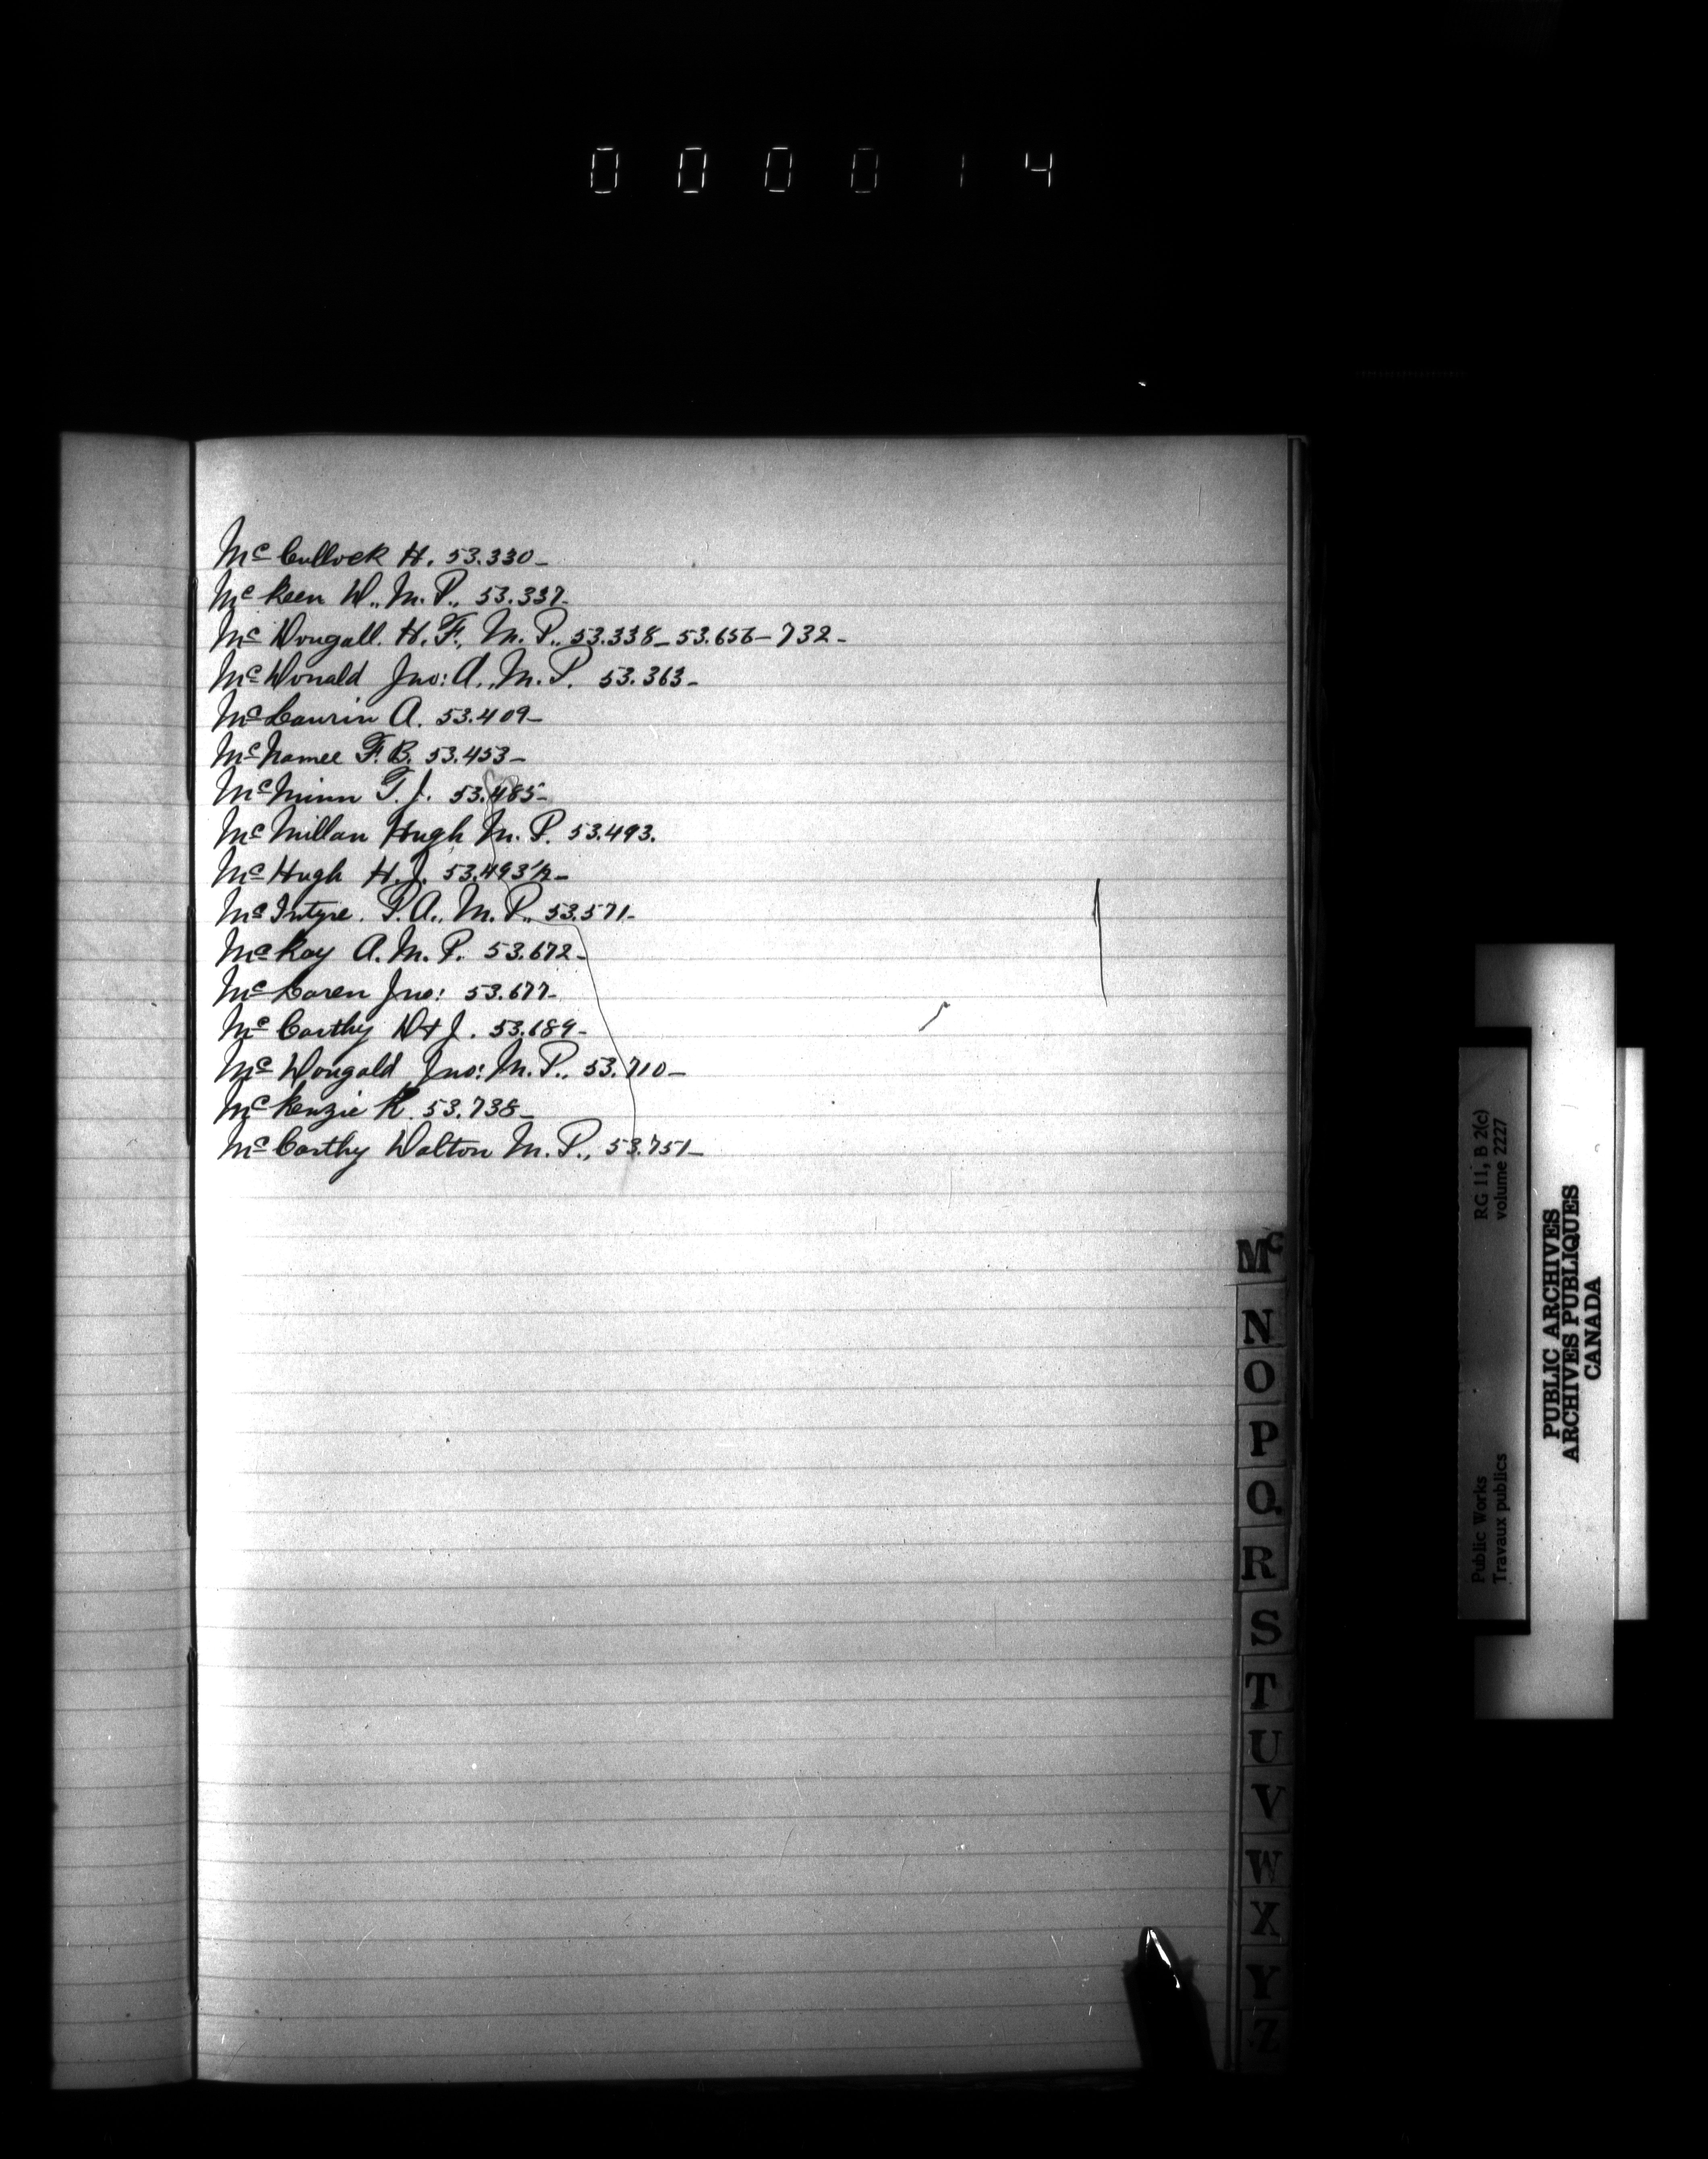 000014
Mc Cullock H. 53.330-
Mc Keen W., M.P., 53.337-
Mc Dougall. H.F., M.P., 53.338-53.656-732-
Mc Donald Jno: A., M.P. 53.363-
Mc Laurin A. 53.409-
Mc Namee F.B. 53.453-
Mc Minn T.J. 53.485-
Mc Millan Hugh M.P. 53.493.
Mc Hugh H.J. 53.493½-
Mc Intyre. P.A., M.P., 53.571-
Mc Kay A. M.P. 53.672-
Mc Laren Jno: 53.677-
Mc Carthy D & J. 53.689-
Mc Dougald Jno: M.P., 53.710-
Mc Kenzie K. 53.738-
Mc Carthy Dalton M.P., 53.751-
Mc
N
O
P
Q
R
S
T
U
V
W
X
Y
Z
RG 11, B 2(c)
volume 2227
Public Works
Travaux publics
PUBLIC ARCHIVES
ARCHIVES PUBLIQUES
CANADA